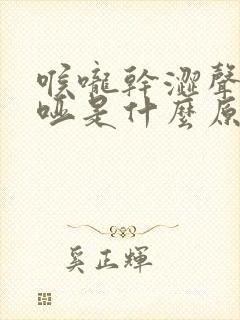 喉嚨幹澀聲
啞是什麼原
奚正輝